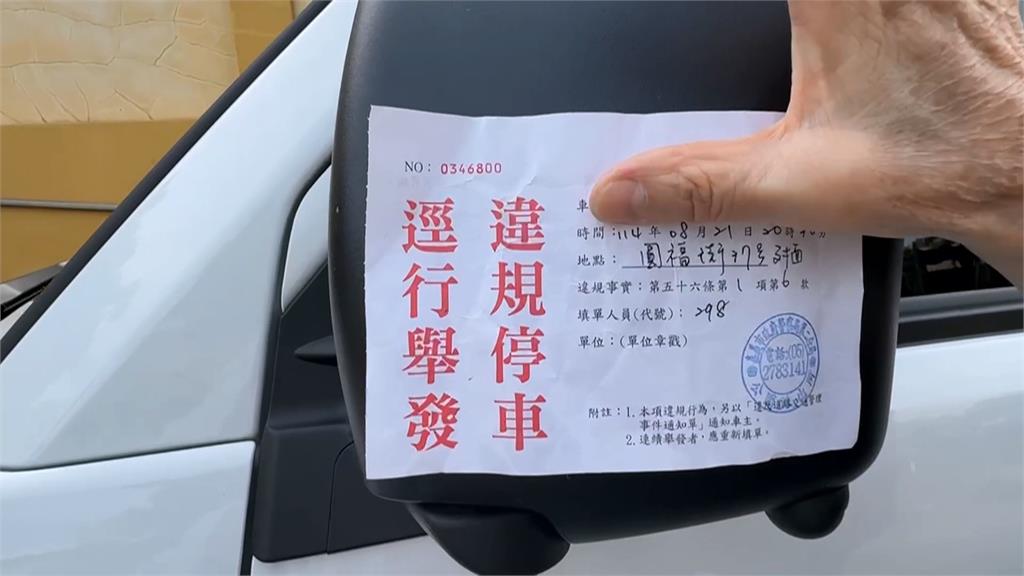 NO：0346800
違規停車
逕行舉發
車
時間：114年08月21日20時40分
地點：圓福街17号對面
違規事實：第五十六條第1項第6款
填單人員(代號)：298
單位：(單位章戳)
電話:(05)
2783141
附註：1.本項違規行為，另以「違反道路交通管理
事件通知單」通知車主。
2.連續舉發者，應重新填單。